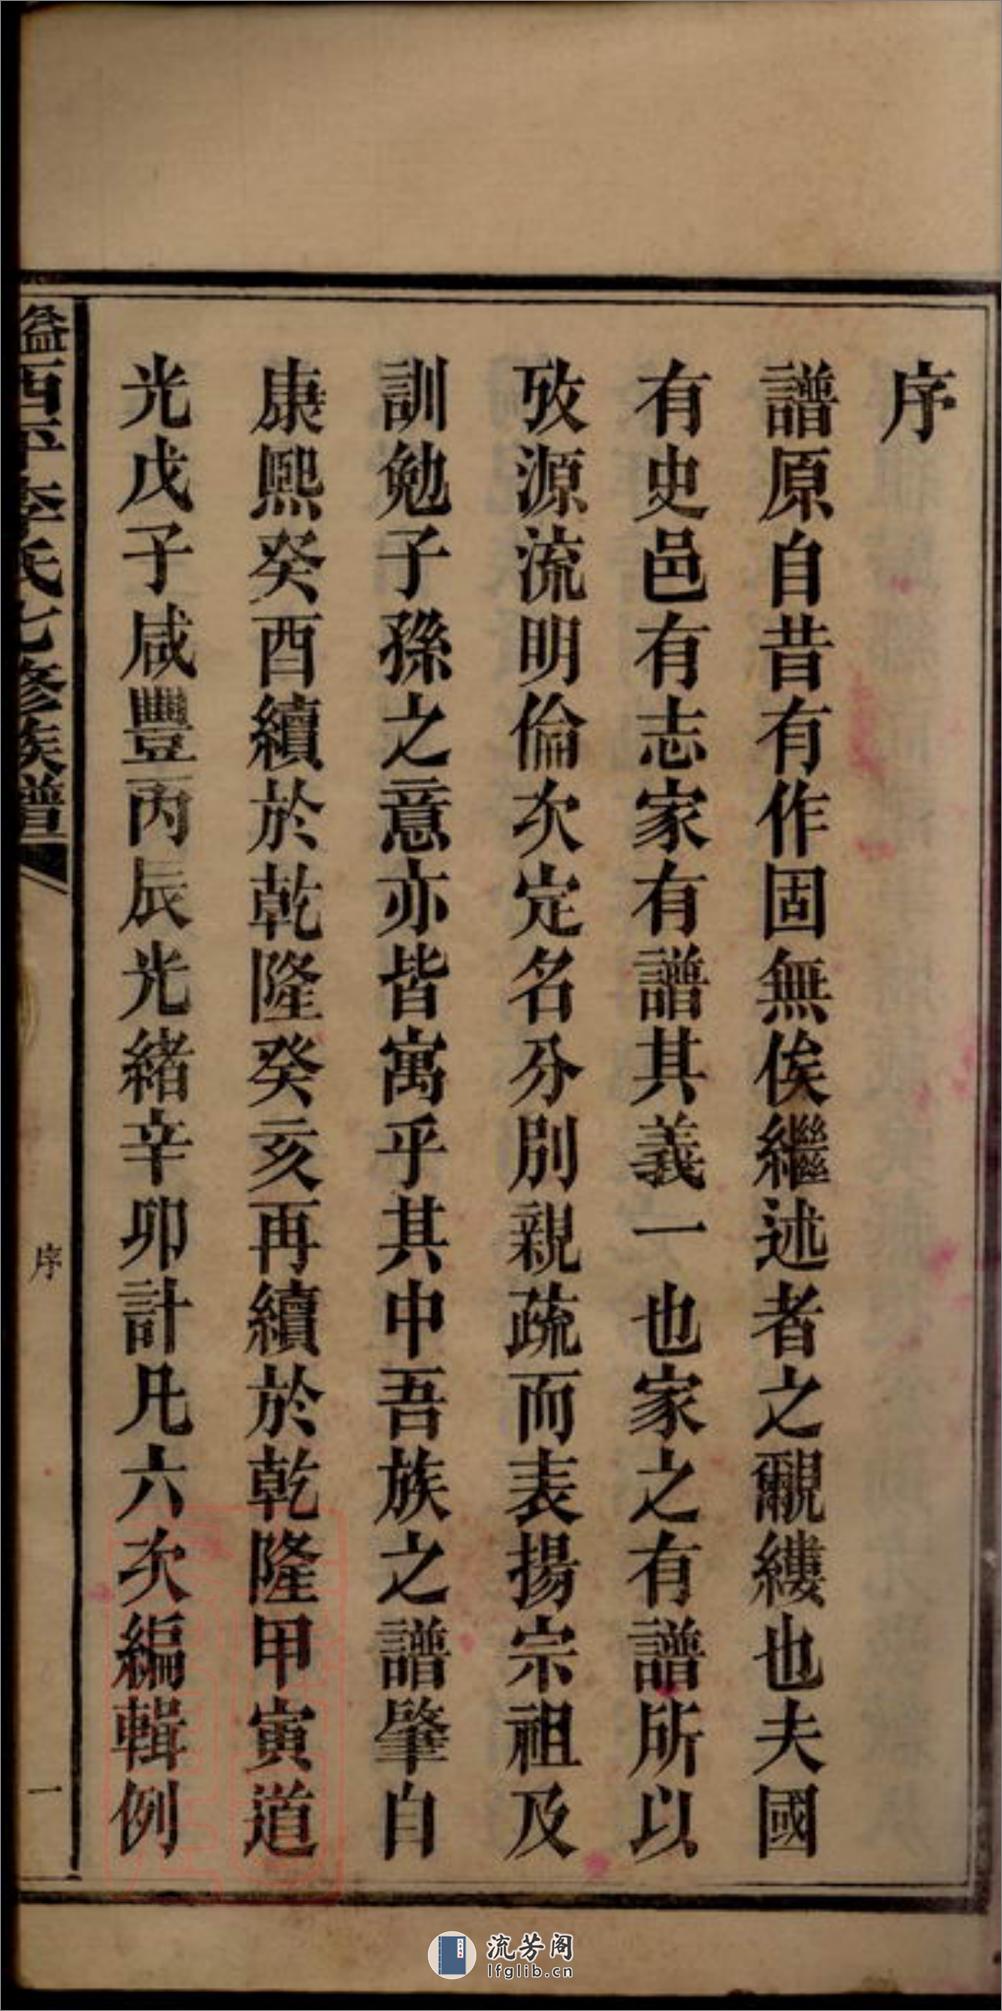 序
譜原自昔有作固無俟繼述者之覼縷也夫國
有史邑有志家有譜其義一也家之有譜所以
攷源流明倫次定名分別親疏而表揚宗祖及
訓勉子孫之意亦皆寓乎其中吾族之譜肇自
康熙癸酉續於乾隆癸亥再續於乾隆甲寅道
光戊子咸豐丙辰光緒辛卯計凡六次編輯例
益西平李氏七修族譜
序
一
流芳阁
lfglib.cn